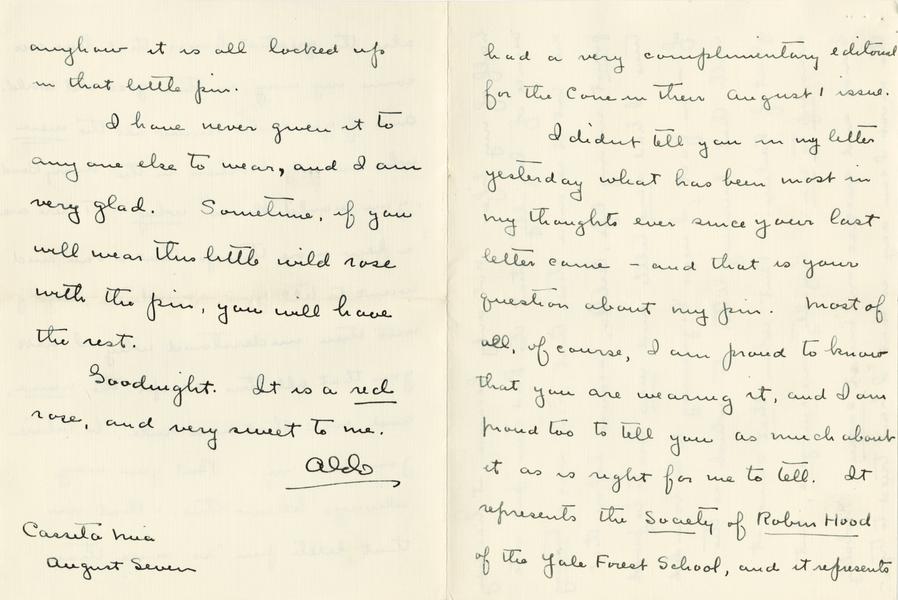 anyhow it is all locked up
in that little pin.
I have never given it to
any one else to wear, and I am
very glad. Sometime, if you
will wear this little wild rose
with the pin, you will have
the rest.
Goodnight. It is a red
rose, and very sweet to me.
Aldo
Casseta Mia
August Seven
had a very complimentary editorial
for the Cone in their August 1 issue.
I didnt tell you in my letter
yesterday what has been most in
my thoughts ever since your last
letter came – and that is your
question about my pin. Most of
all, of course, I am proud to know
that you are wearing it, and I am
proud too to tell you as much about
it as is right for me to tell. It
represents the Society of Robin Hood
of the Yale Forest School, and it represents